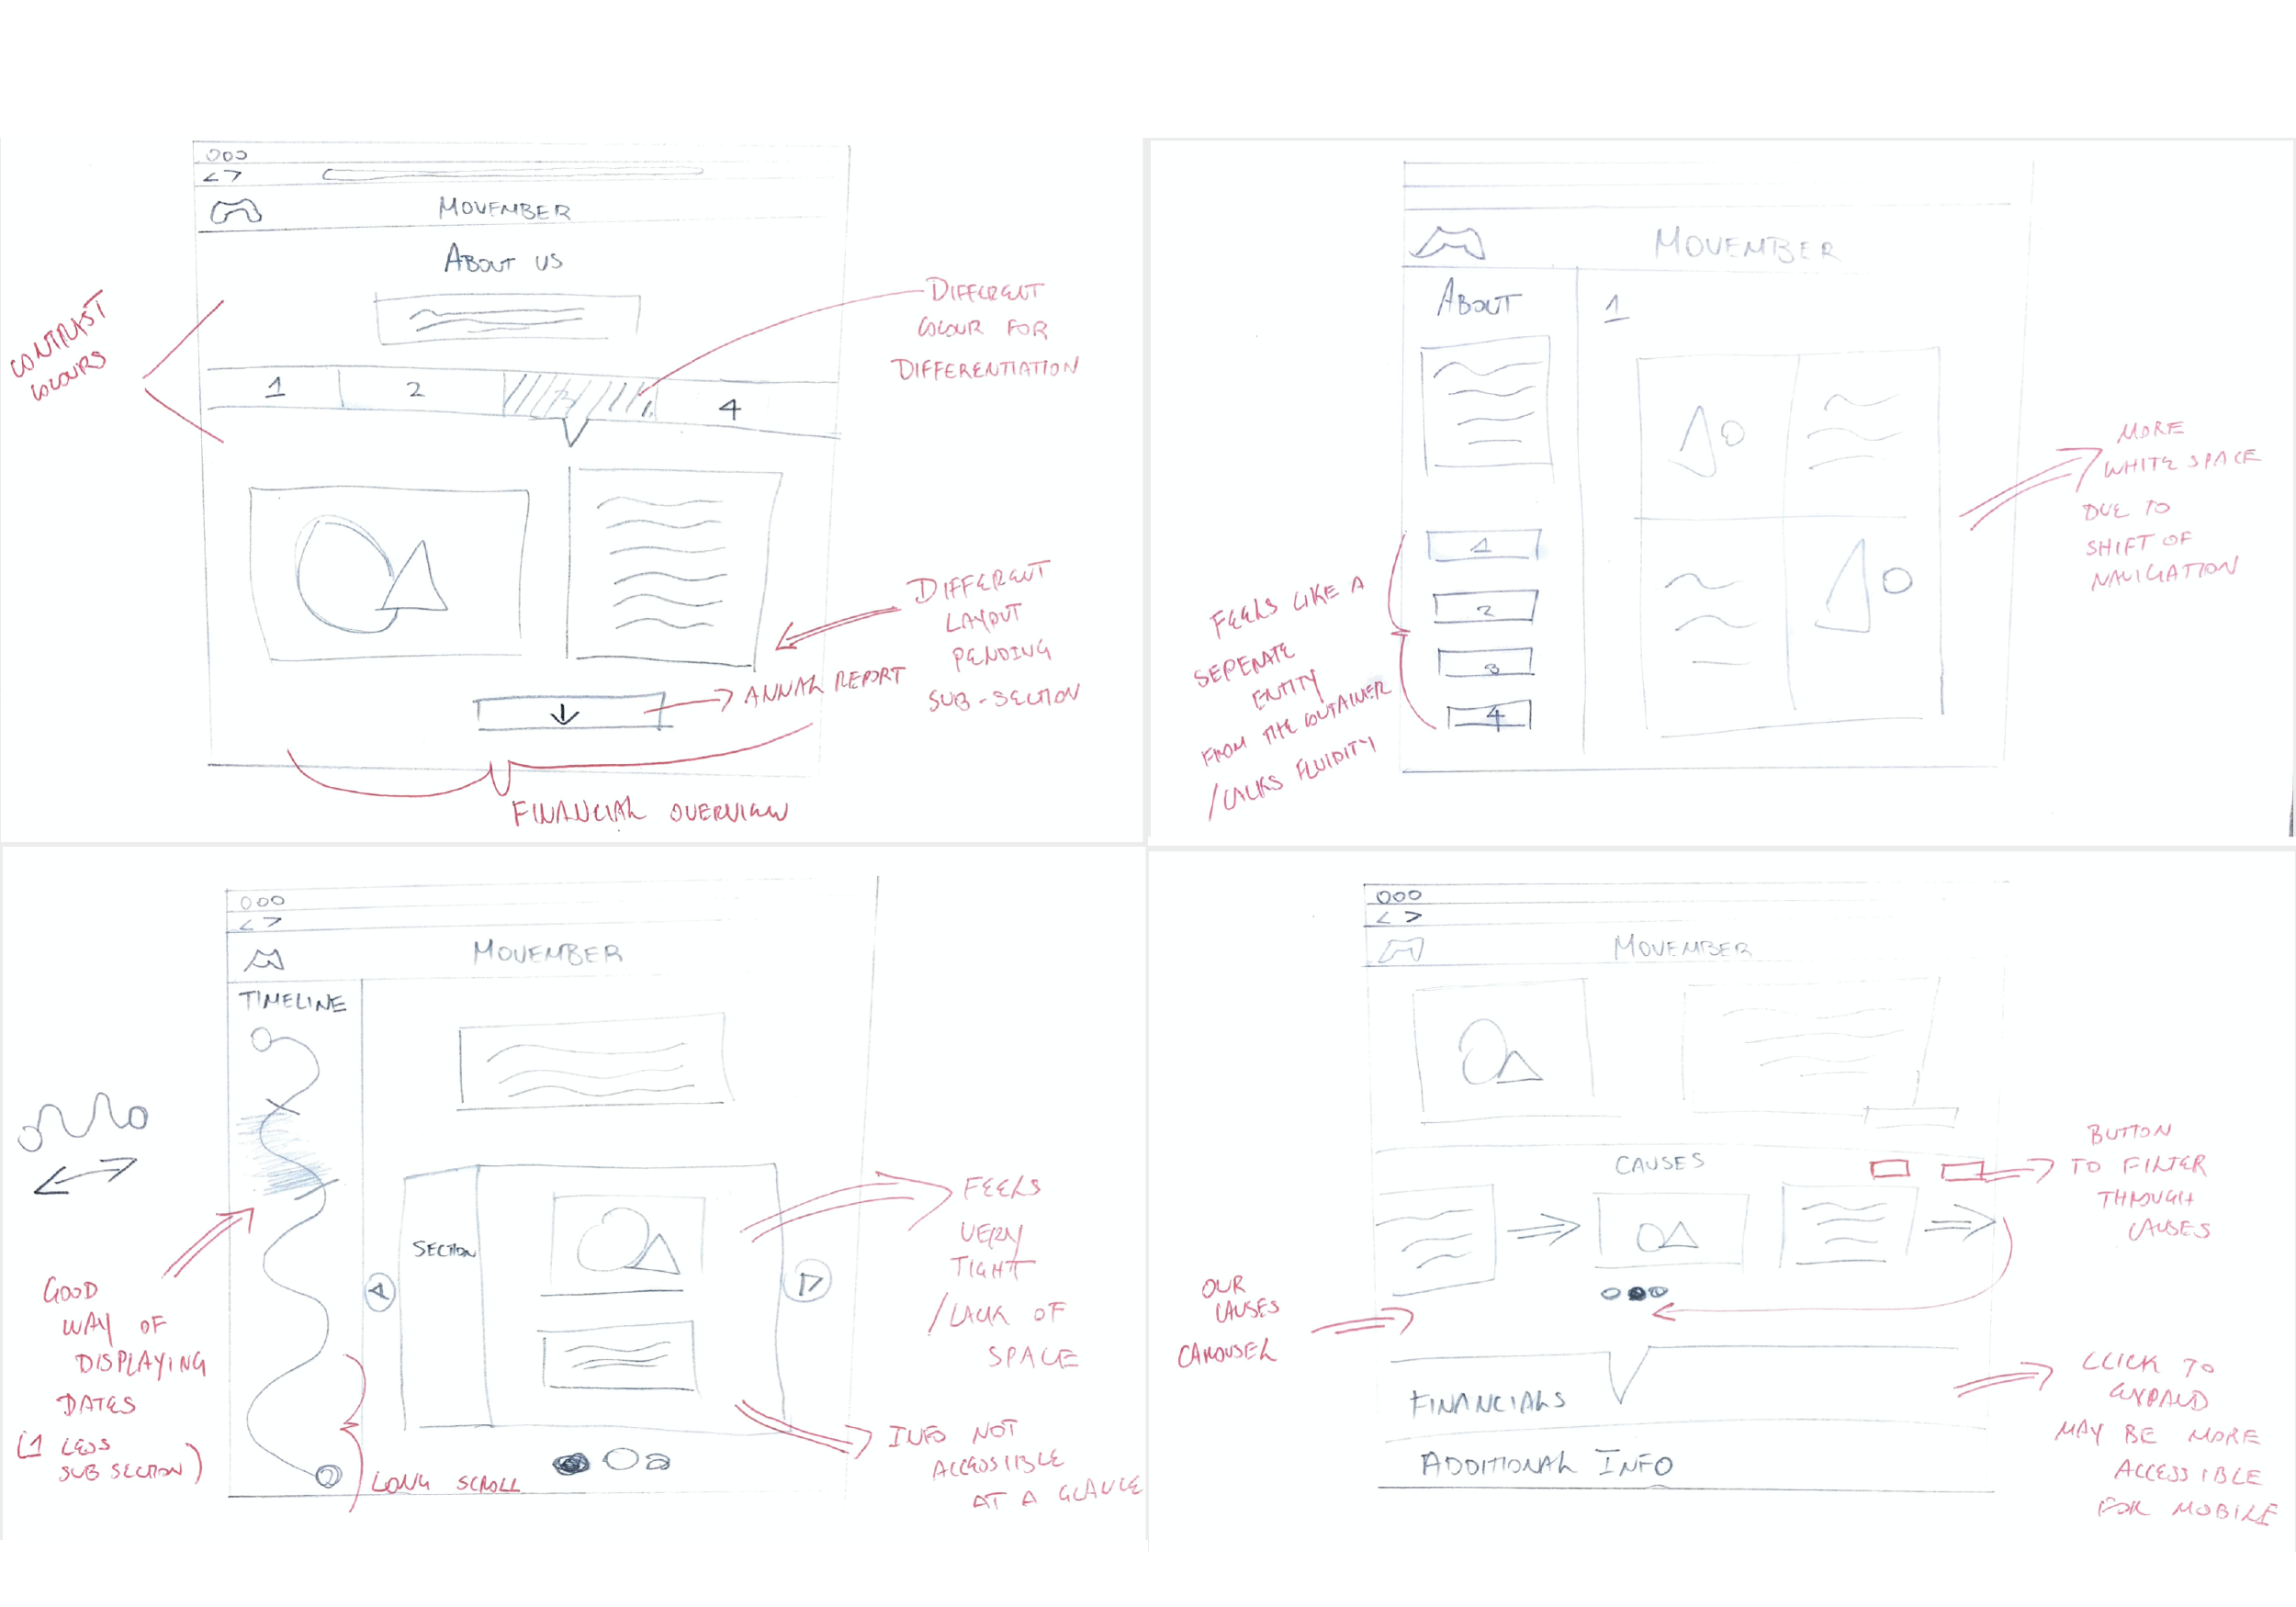 MOVEMBER
ABOUT US
1
2
4
CONTRAST
COLOURS
DIFFERENT
COLOUR FOR
DIFFERENTIATION
DIFFERENT
LAYOUT
PENDING
SUB-SECTION
ANNAL REPORT
FINANCIAL OVERVIEW
MOVEMBER
ABOUT
1
1
2
3
4
FEELS LIKE A
SEPERATE
ENTITY
FROM THE CONTAINER
/LACKS FLUIDITY
MORE
WHITE SPACE
DUE TO
SHIFT OF
NAVIGATION
MOVEMBER
TIMELINE
SECTION
GOOD
WAY OF
DISPLAYING
DATES
(1 LESS
SUB SECTION)
LONG SCROLL
FEELS
VERY
TIGHT
/LACK OF
SPACE
INFO NOT
ACCESSIBLE
AT A GLANCE
MOVEMBER
CAUSES
BUTTON
TO FILTER
THROUGH
CAUSES
OUR
CAUSES
CAROUSEL
FINANCIALS
ADDITIONAL INFO
CLICK TO
EXPAND
MAY BE MORE
ACCESSIBLE
FOR MOBILE